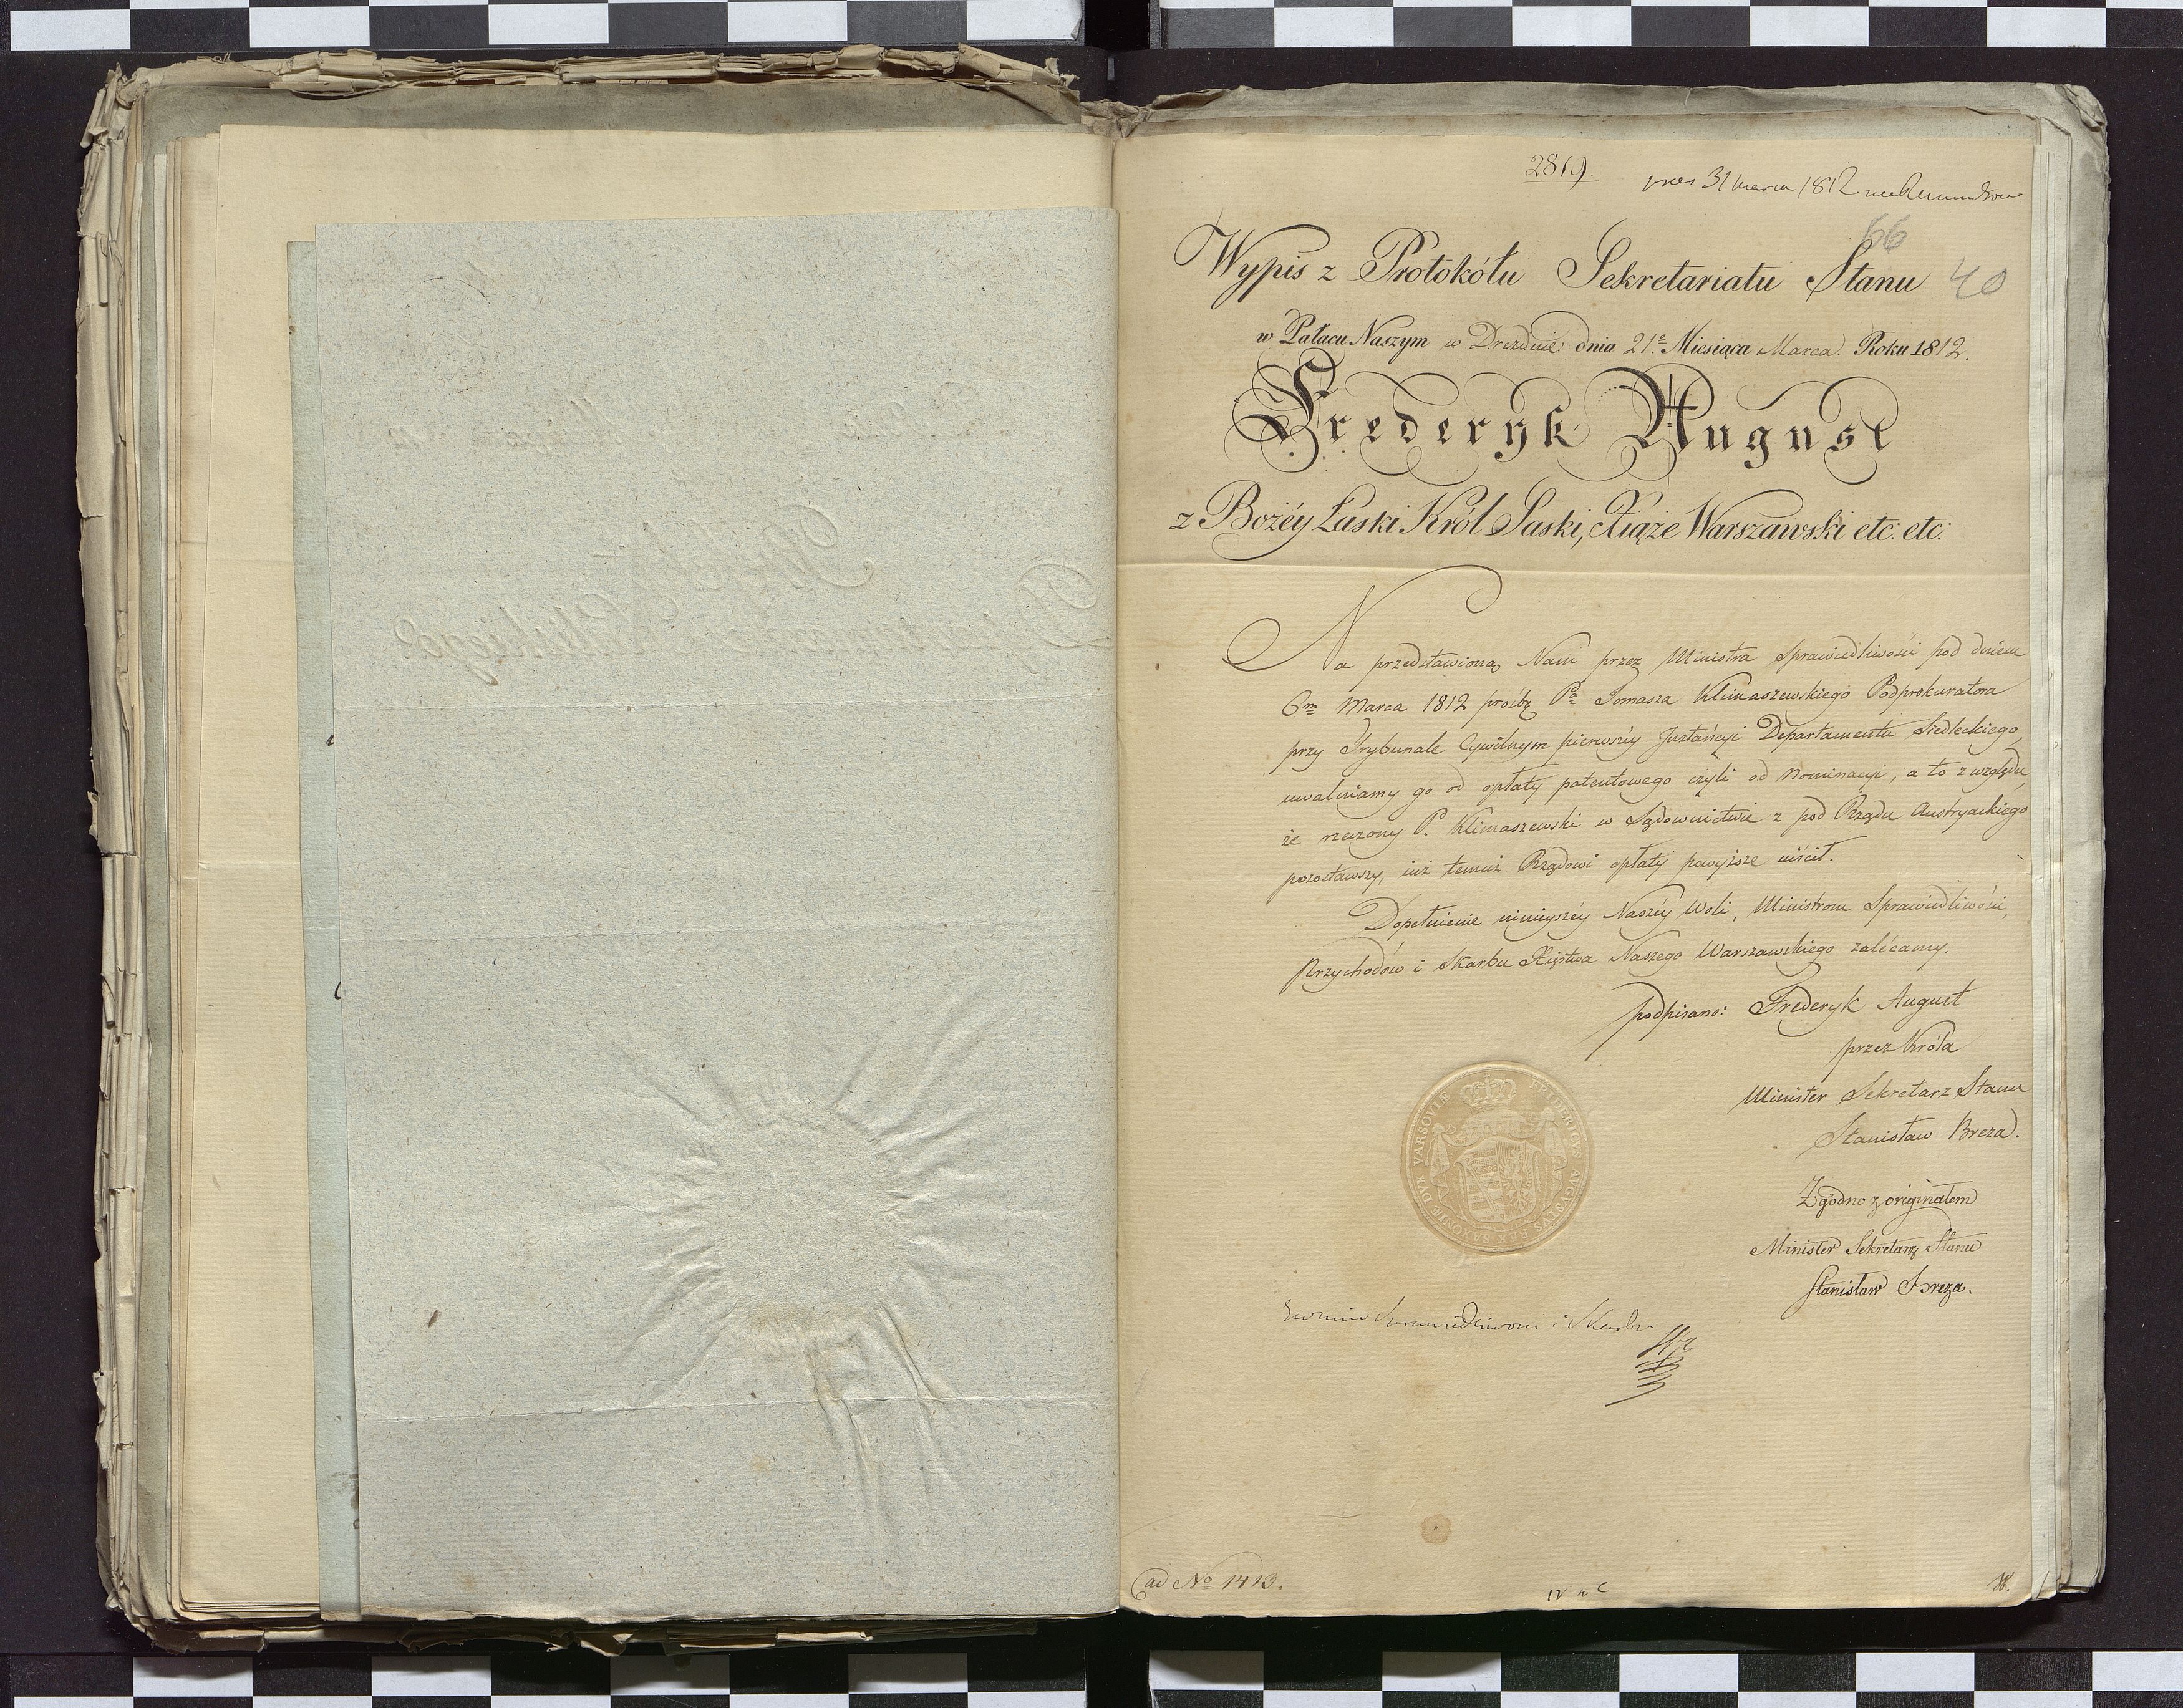 2819.
31 marca 1812
66
Wypis z Protokółu Sekretariatu Stanu
40
w Pałacu Naszym w Dreznie dnia 21.º Miesiąca Marca Roku 1812.
Frederyk August
z Bożéy Łaski Król Saski, Xiąże Warszawski etc: etc:
Na przedstawioną Nam przez Ministra Sprawiedliwości pod dniem
6m Marca 1812 prośbę Pa Tomasza Klimaszewskiego Podprokuratora
przy Trybunale Cywilnym pierwszéy Instancyi Departamentu Siedleckiego,
uwalniamy go od opłaty patentowego czyli od Nominacyi, a to z względu
że rzeczony P. Klimaszewski w Sądownictwie z pod Rządu Austryackiego
pozostawszy, iuż temuż Rządowi opłaty powyższe uiścił.
Dopełnienie ninieyszéy Naszéy Woli, Ministrom Sprawiedliwości,
Przychodów i Skarbu Xięstwa Naszego Warszawskiego zalécamy.
podpisano: Frederyk August
przez Króla
Minister Sekretarz Stanu
Stanisław Breza.
FRIDERICVS AVGVSTVS REX SAXONIÆ DVX VARSOVIÆ
Zgodno z originałem
Minister Sekretarz Stanu
Stanisław Breza.
Sprawiedliwości i Skarbu
ad No 1413.
W.